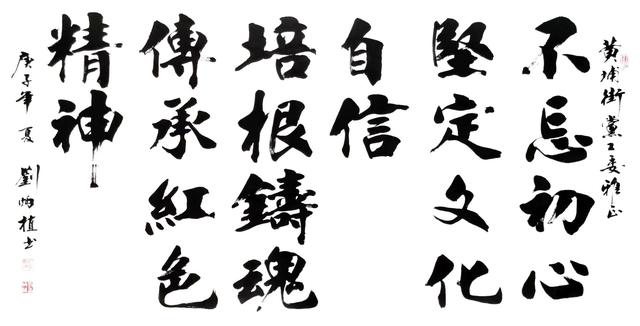 黄埔街黨工委雅正
不忘初心
堅定文化
自信
培根鑄魂
傳承紅色
精神
庚子年夏 劉炳植书